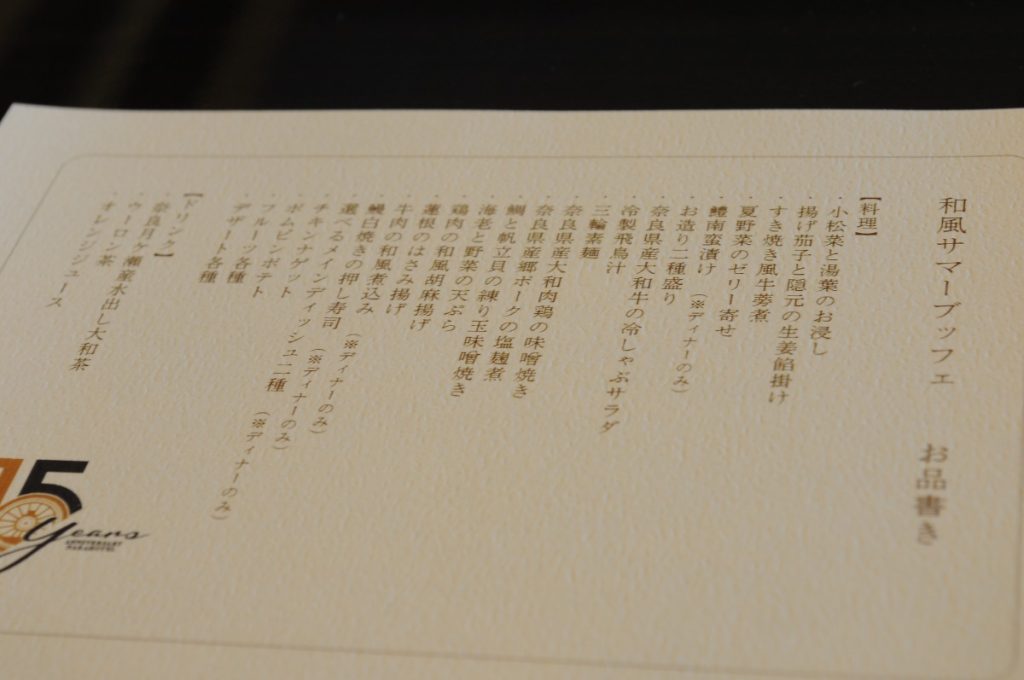 和風サマーブッフェ　お品書き
【料理】
・小松菜と湯葉のお浸し
・揚げ茄子と隠元の生姜餡掛け
・すき焼き風牛蒡煮
・夏野菜のゼリー寄せ
・鱧南蛮漬け
・お造り二種盛り（※ディナーのみ）
・奈良県産大和牛の冷しゃぶサラダ
・冷製飛鳥汁
・三輪素麺
・奈良県産大和肉鶏の味噌焼き
・奈良県産郷ポークの塩麹煮
・鯛と帆立貝の練り玉味噌焼き
・海老と野菜の天ぷら
・鶏肉の和風胡麻揚げ
・蓮根のはさみ揚げ
・牛肉の和風煮込み
・鰻白焼きの押し寿司（※ディナーのみ）
・選べるメインディッシュ二種（※ディナーのみ）
・チキンナゲット
・ポムピンポテト
・フルーツ各種
・デザート各種
【ドリンク】
・奈良月ヶ瀬産水出し大和茶
・ウーロン茶
・オレンジジュース
15
years
ANNIVERSARY